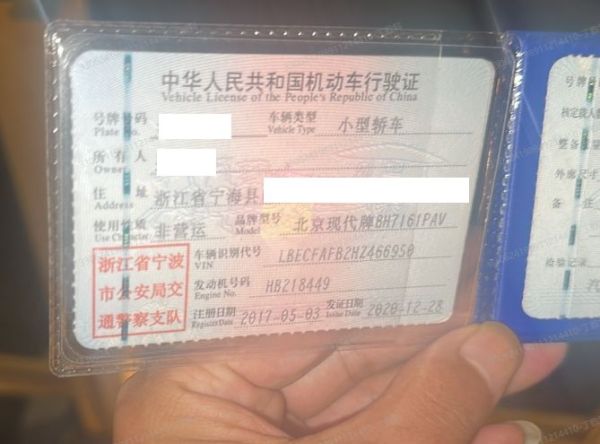 中华人民共和国机动车行驶证
Vehicle License of the People's Republic of China
号牌号码
Plate No.
车辆类型 小型轿车
Vehicle Type
所有人
Owner
住址 浙江省宁海县
Address
使用性质 非营运
Use Character
品牌型号 北京现代牌BH7161PAV
Model
浙江省宁波
市公安局交
通警察支队
车辆识别代号 LBECFAFB2HZ466950
VIN
发动机号码 HB218449
Engine No.
注册日期 2017-05-03
Register Date
发证日期 2020-12-28
Issue Date
号牌号
核定载人数
整备质量
外廓尺寸
备注
检验记录